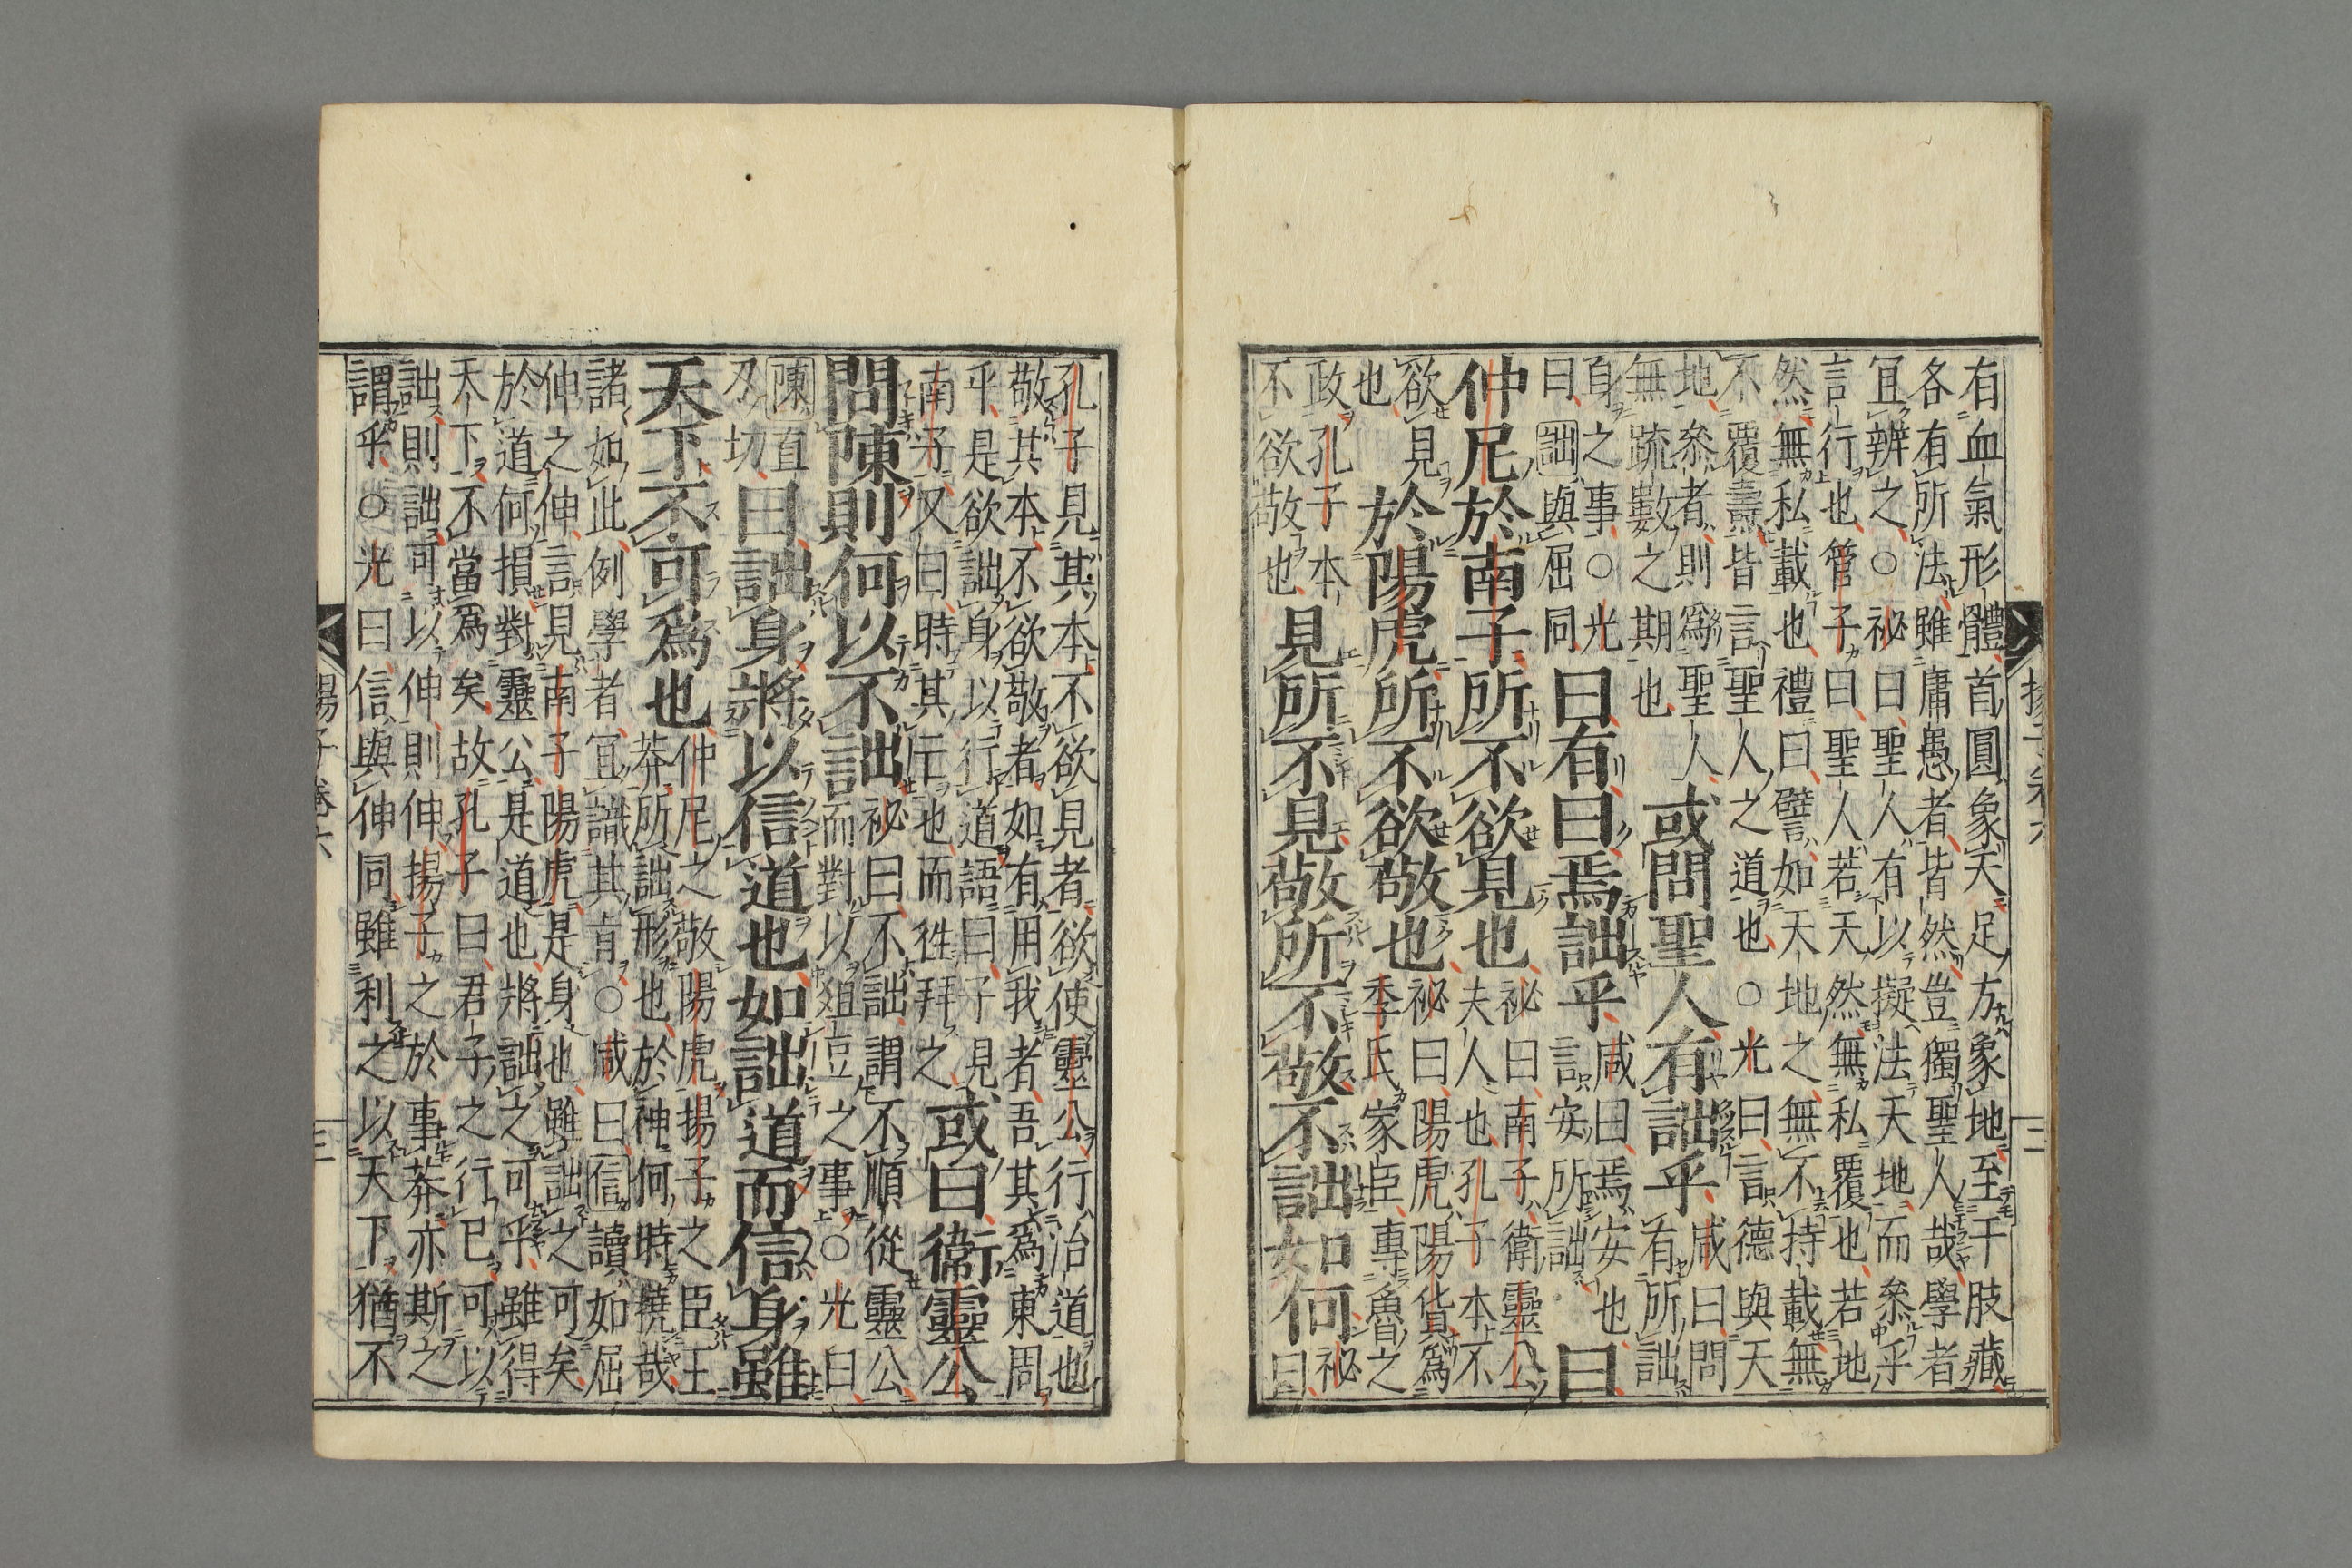 有血氣形體首圓象天足方象地至于肢藏
各有所法雖庸愚者皆然豈獨聖人哉學者
冝辨之○祕曰聖人有以擬法天地而叅乎
言行也管子曰聖人若天然無私覆也若地
然無私載也禮曰譬如天地之無不持載無
不覆燾皆言聖人之道也○光曰言德與天
地叅者則爲聖人
無疏數之期也
或問聖人有詘乎
咸曰問
有所詘
身之事○光
曰詘與屈同
曰有曰焉詘乎
咸曰焉安也
言安所詘
曰
仲尼於南子所不欲見也
祕曰南子衛靈公
夫人也孔子本不
欲見
也
於陽虎所不欲敬也
祕曰陽虎陽貨爲
季氏家臣專魯之
政孔子本
不欲敬也
見所不見敬所不敬不詘如何
祕
曰
揚子卷六
二
孔子見其本不欲見者欲使靈公行治道也
敬其本不欲敬者如有用我者吾其爲東周
乎是欲詘身以行道語曰子見
南子又曰時其亡也而徃拜之
或曰衛靈公
問陳則何以不詘
祕曰不詘謂不順從靈公
而對以俎豆之事○光曰
陳直
刃切
曰詘身將以信道也如詘道而信身雖
天下不可爲也
仲尼之敬陽虎揚子之臣王
莽所詘形也於神何時撓哉
諸如此例學者冝識其㫖○咸曰信讀如屈
伸之伸言見南子陽虎是身也雖詘之可矣
於道何損對靈公是道也將詘之可乎雖得
天下不當爲矣故孔子曰君子之行已可以
詘則詘可以伸則伸揚子之於事莽亦斯之
謂乎○光曰信與伸同雖利之以天下猶不
揚子卷六
三